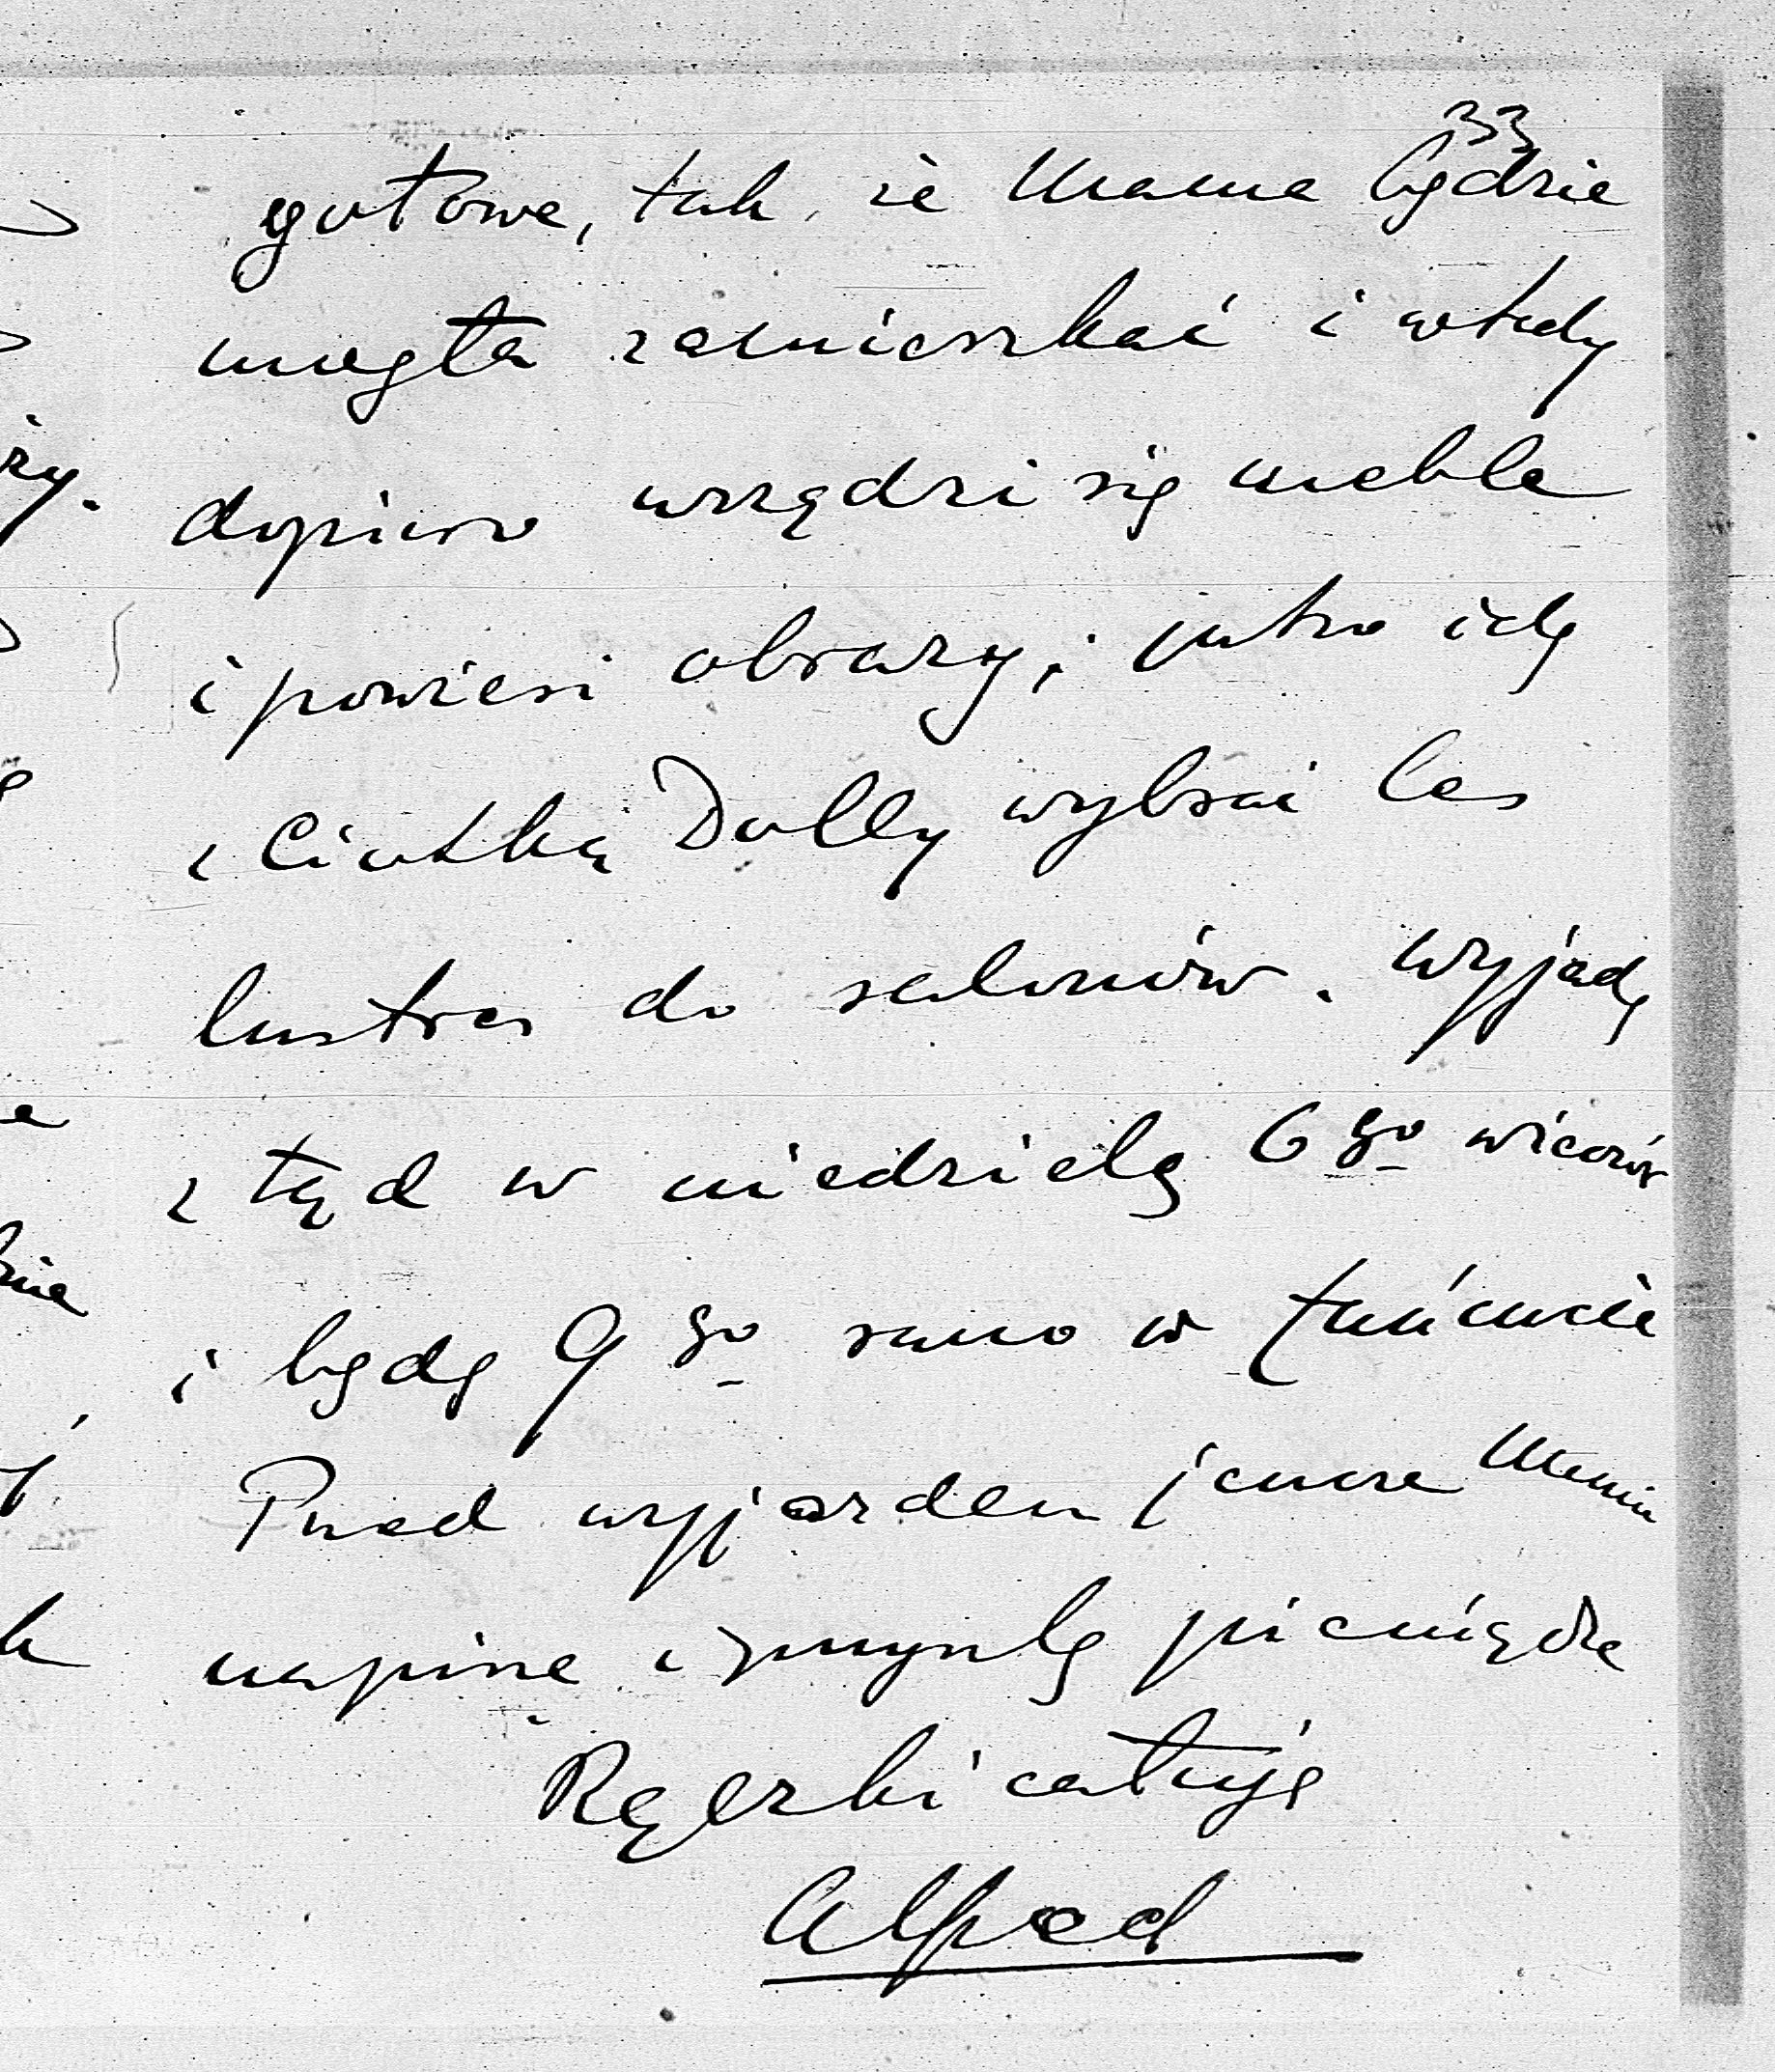 33
gotowe, tak, że Mama będzie
mogła zamieszkać i wtedy
dopiero urządzi się meble
i powiesi obrazy; jutro idę
z Ciotką Dolly wybrać
lustra do salonów. Wyjadę
z tąd w niedzielę 6go wieczór
i będę 9go rano w Łańcucie
Przed wyjazdem jeszcze Mamie
napiszę i przyszlę pieniądze
Rączki całuję
Alfred